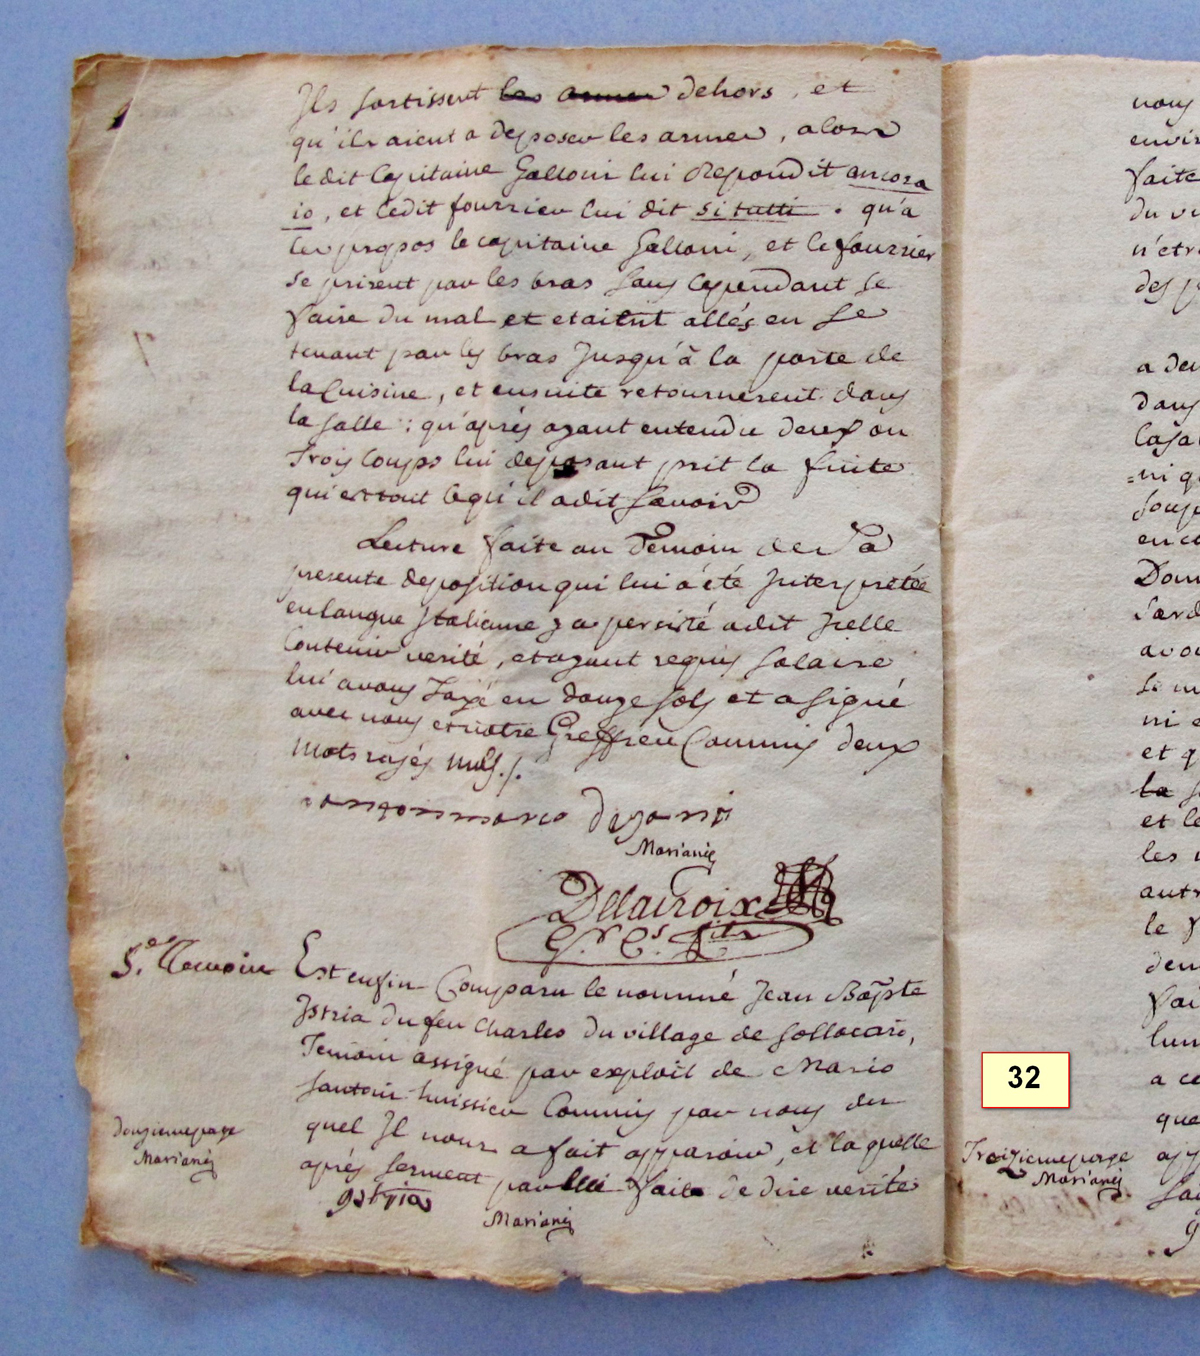 Ils sortissent les armes dehors, et
qu'ils aient a deposer les armes, alors
le dit Capitaine Galloni lui Repondit ancora
io, et ledit fourrier lui dit si tutti. qu'a
ces propos le capitaine Galloni, et le fourrier
se prirent par les bras sans cependant se
faire du mal et etaient allés en se
tenant par les bras Jusqu'à la porte de
la Cuisine, et ensuite retournerent dans
la salle : qu'aprés ayant entendu deux ou
Trois Coups lui deposant prit la fuite
qui est tout ce qu'il a dit savoir
Lecture faite au Temoin de Sa
presente deposition qui lui a été Interpretée
en langue Italienne y a persisté a dit Icelle
Contenir verité, et ayant requis salaire
lui avons Taxé en douze sols et a signé
avec nous et notre Greffier Commis deux
mots rayés nuls ./.
Mariani
Delacroix
5.e Temoin
Est enfin Comparu le nommé Jean Bapte
Istria du feu Charles du village de Sollacaro,
Temoin assigné par exploit de Mario
Santoni huissier Commis par nous du
quel Il nous a fait apparoir, et laquelle
aprés serment par lui fait de dire verité
Istria
Mariani
Douziemepage
Mariani
nous
envir
faite
n'etr
des p
dans
Dom
Sard
avo
ni e
et q
la
et le
autr
le
a ce
que
Troiziemepage
Mariani
32